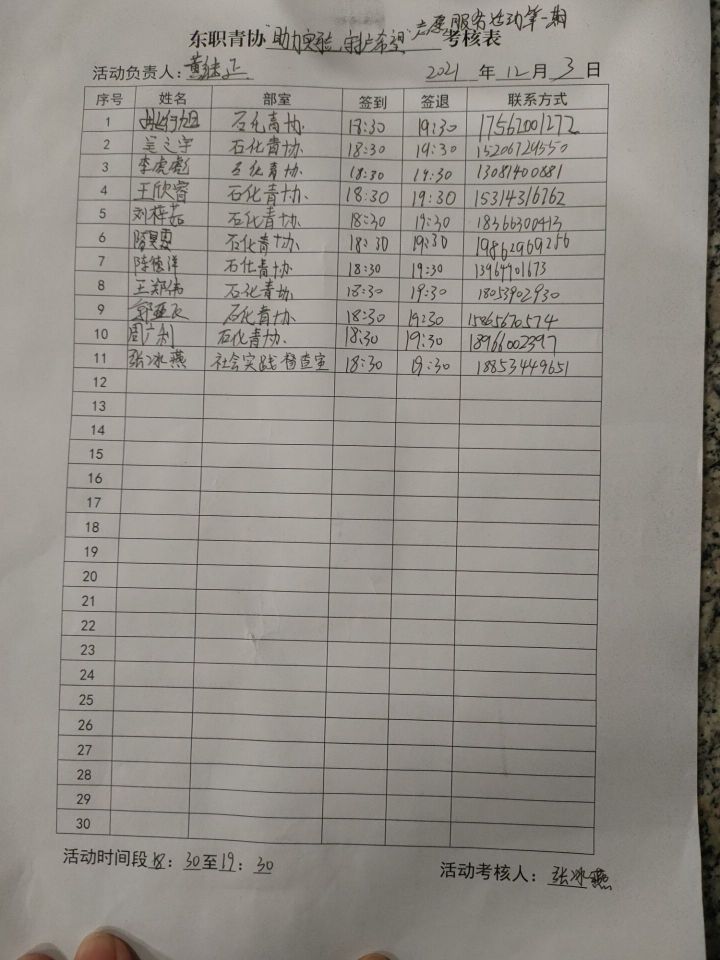 志愿服务活动第一期
东职青协"助力实验,守护希望"考核表
活动负责人:黄继正 2021年12月3日
序号 姓名 部室 签到 签退 联系方式
1 石化青协 18:30 19:30 17562001272
2 石化青协 18:30 19:30 15206729550
3 李虎彪 石化青协 18:30 19:30 13081400881
4 王欣睿 石化青协 18:30 19:30 15314316762
5 刘梓茹 石化青协 18:30 19:30 18366300413
6 石化青协 18:30 19:30 19862969256
7 陈德洋 石化青协 18:30 19:30 13964901673
8 王郑伟 石化青协 18:30 19:30 18053902930
9 石化青协 18:30 19:30 15865670574
10 周广利 石化青协 18:30 19:30 18966002397
11 张冰燕 社会实践督查室 18:30 19:30 18853449651
12
13
14
15
16
17
18
19
20
21
22
23
24
25
26
27
28
29
30
活动时间段18:30至19:30 活动考核人:张冰燕